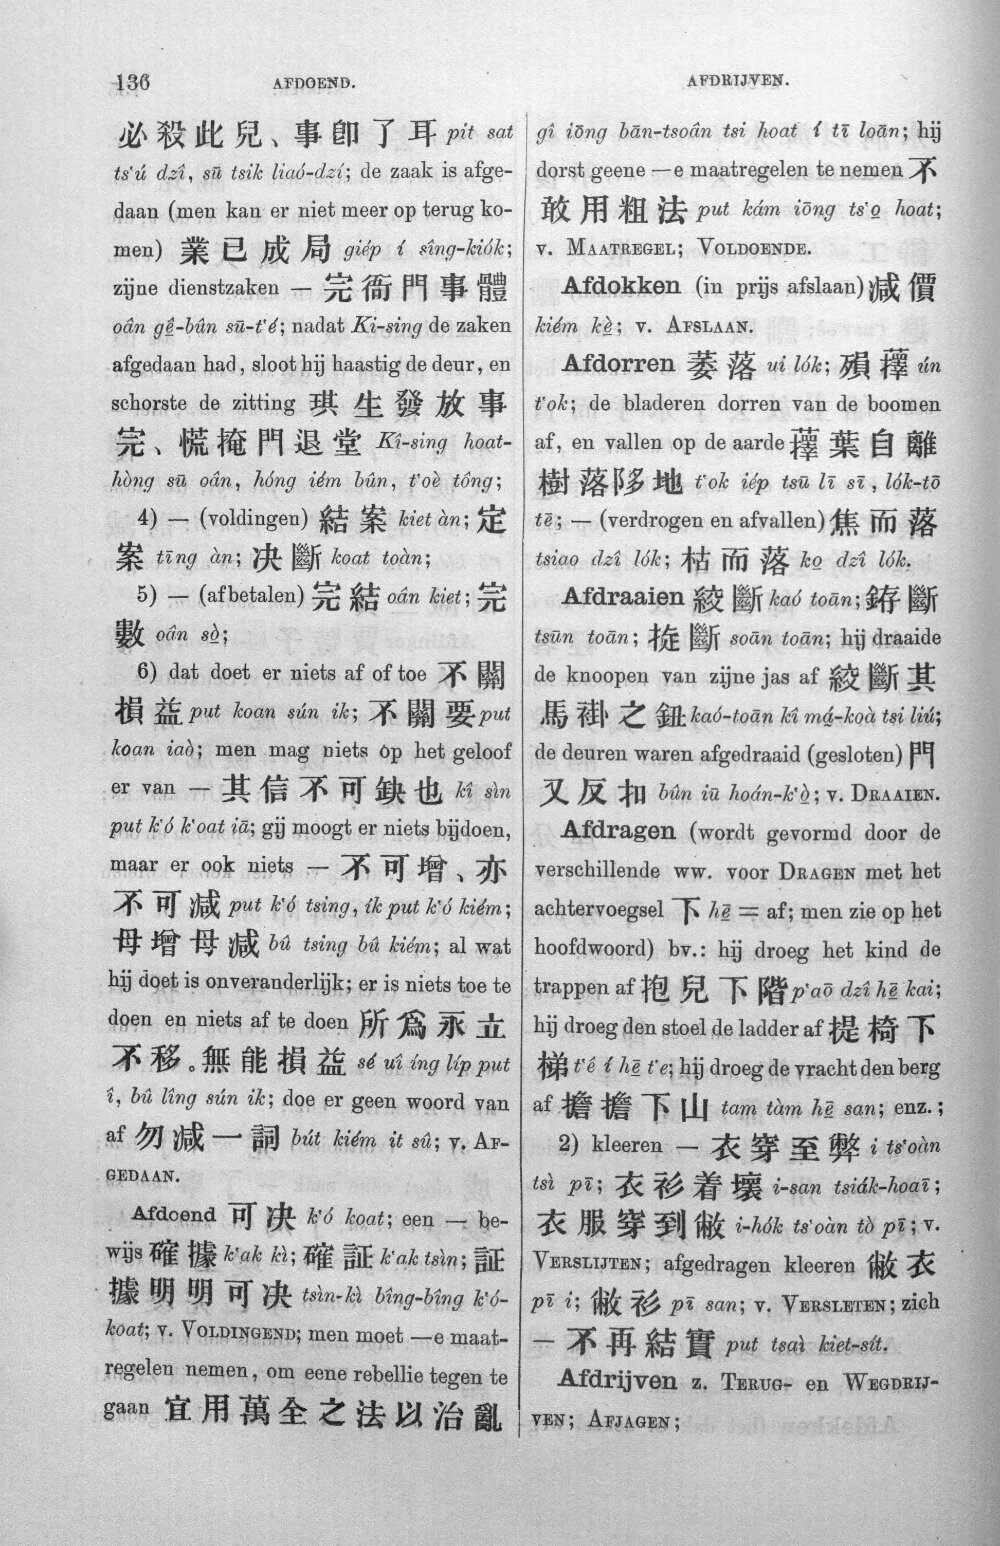 136
AFDOEND.
AFDRIJVEN.
必殺此兒、事卽了耳 pit sat
ts‘ú dzî, sū tsik liaó-dzí; de zaak is afge-
daan (men kan er niet meer op terug ko-
men) 業已成局 giép í sîng-kiók;
zijne dienstzaken — 完衙門事體
oân gê-bûn sū-t‘é; nadat Ki-sing de zaken
afgedaan had, sloot hij haastig de deur, en
schorste de zitting 琪生發放事
完、慌掩門退堂 Kî-sing hoat-
hòng sū oân, hóng iém bûn, t‘oè tông;
4) — (voldingen) 結案 kiet àn; 定
案 tīng àn; 决斷 koat toàn;
5) — (afbetalen) 完結 oán kiet; 完
數 oân sò;
6) dat doet er niets af of toe 不關
損益 put koan sún ik; 不關要 put
koan iaò; men mag niets op het geloof
er van — 其信不可缺也 kî sìn
put k‘ó k‘oat iā; gij moogt er niets bijdoen,
maar er ook niets — 不可增、亦
不可減 put k‘ó tsing, ík put k‘ó kiém;
母增母減 bû tsing bû kiém; al wat
hij doet is onveranderlijk; er is niets toe te
doen en niets af te doen 所爲永立
不移。無能損益 sé uî íng líp put
î, bû lîng sún ik; doe er geen woord van
af 勿減一詞 bút kiém it sû; v. AF-
GEDAAN.
Afdoend 可决 k‘ó koat; een — be-
wijs 確據 k‘ak kì; 確証 k‘ak tsìn; 証
據明明可决 tsìn-kì bîng-bîng k‘ó-
koat; v. VOLDINGEND; men moet —e maat-
regelen nemen, om eene rebellie tegen te
gaan 宜用萬全之法以治亂
gî iōng bān-tsoân tsi hoat í tī loān; hij
dorst geene —e maatregelen te nemen 不
敢用粗法 put kám iōng ts‘o hoat;
v. MAATREGEL; VOLDOENDE.
Afdokken (in prijs afslaan) 減價
kiém kè; v. AFSLAAN.
Afdorren 萎落 ui lók; 殞蘀 ún
t‘ok; de bladeren dorren van de boomen
af, en vallen op de aarde 蘀葉自離
樹落陊地 t‘ok iép tsū lī sī, lók-tō
tē; — (verdrogen en afvallen) 焦而落
tsiao dzî lók; 枯而落 ko dzî lók.
Afdraaien 絞斷 kaó toān; 銌斷
tsūn toān; 㨃斷 soān toān; hij draaide
de knoopen van zijne jas af 絞斷其
馬褂之鈕 kaó-toān kî má-koà tsi liú;
de deuren waren afgedraaid (gesloten) 門
又反扣 bûn iū hoán-k‘ò; v. DRAAIEN.
Afdragen (wordt gevormd door de
verschillende ww. voor DRAGEN met het
achtervoegsel 下 hē = af; men zie op het
hoofdwoord) bv.: hij droeg het kind de
trappen af 抱兒下階 p‘aō dzî hē kai;
hij droeg den stoel de ladder af 提椅下
梯 t‘ê í hē t‘e; hij droeg de vracht den berg
af 擔擔下山 tam tàm hē san; enz.;
2) kleeren — 衣穿至弊 i ts‘oàn
tsì pī; 衣衫着壞 i-san tsiák-hoaī;
衣服穿到敝 i-hók ts‘oàn tò pī; v.
VERSLIJTEN; afgedragen kleeren 敝衣
pī i; 敝衫 pī san; v. VERSLETEN; zich
— 不再結實 put tsaì kiet-sít.
Afdrijven z. TERUG- en WEGDRIJ-
VEN; AFJAGEN;